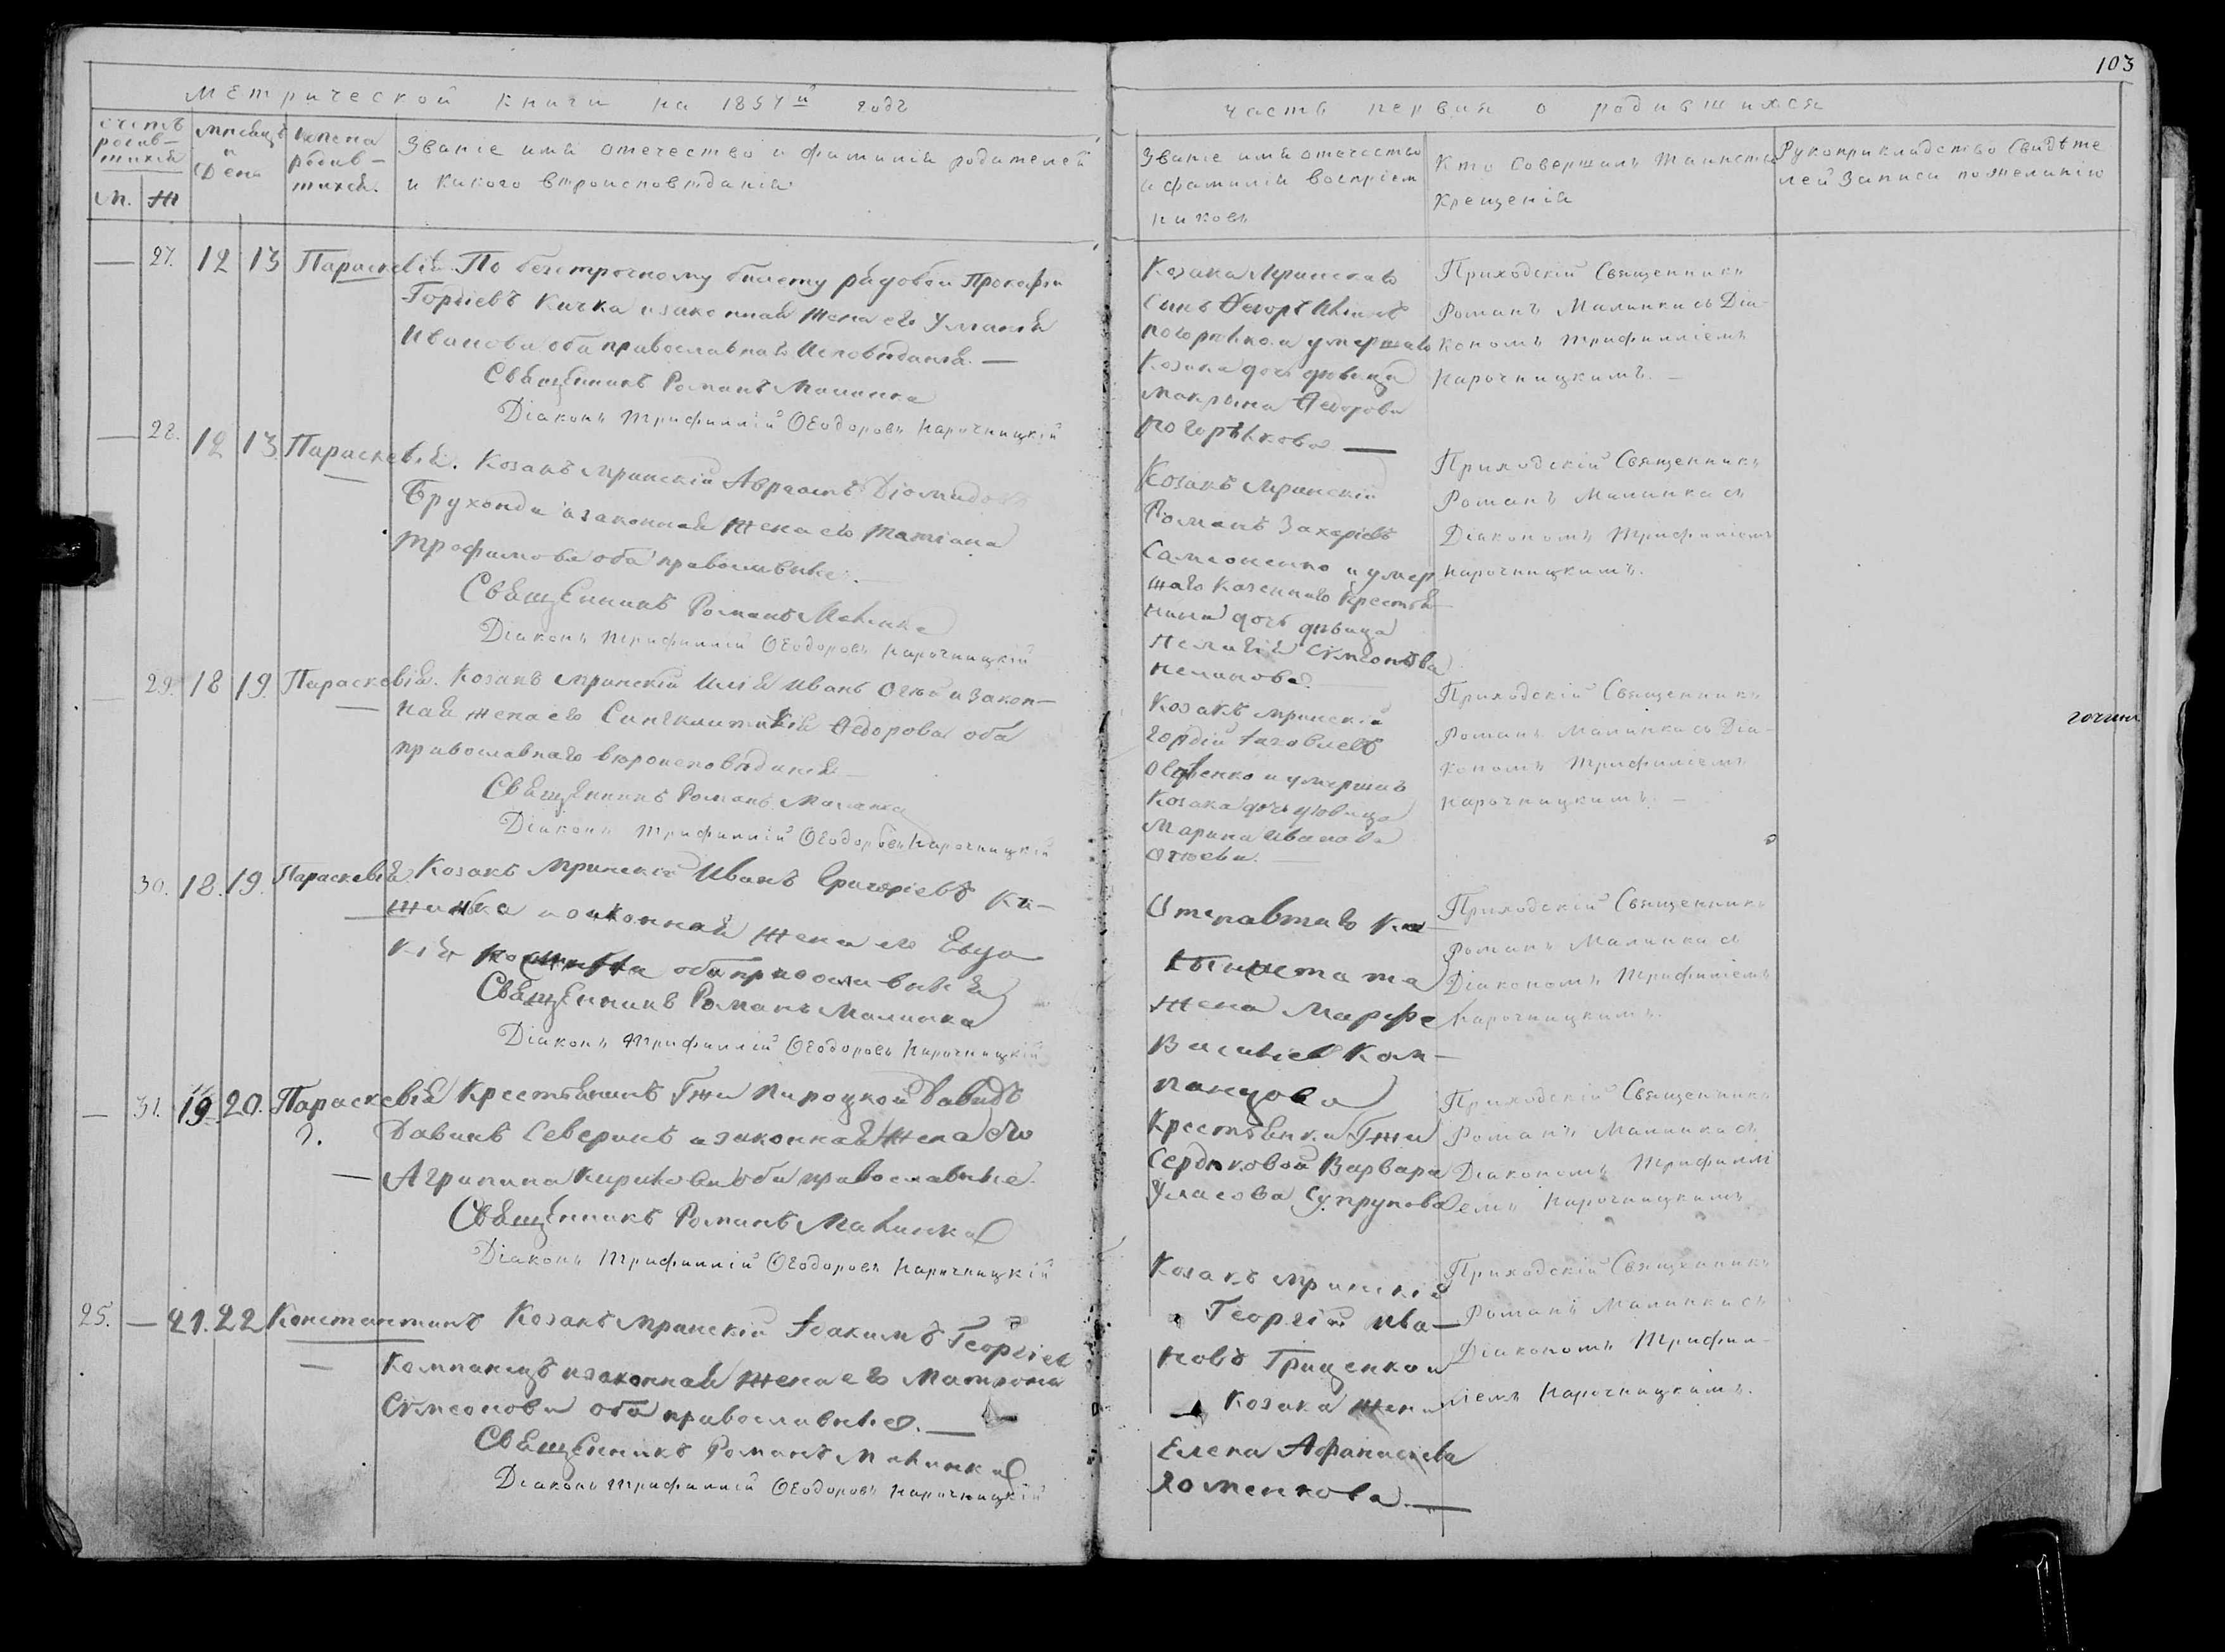 103
Метрической книги на 1857й годъ
Часть первая о родившихся
счетъ родив-шихся
М. Ж
Мѣсяцъ и День
Имена родив-шихся.
Званіе имя отечество и фамилія родителей
и какого вѣроисповѣданія
Званіе имя отечество
и фамилія воспріем
никовъ
Кто совершалъ таинство
Крещенія
Рукоприкладство свидѣте
лей записи по желанію
— 27. 12 13 Параскевія. По безсрочному билету рядовой Прокофій
Гордіевъ Кичка и законная жена его Уліанія
Иванова оба православнаго исповѣданія. —
Священникъ Романъ Малинка
Діаконъ Трифиллій Ѳеодоровъ Нарочницкій
Козака Мринскаго
сынъ
умершаго
Козака дочь дѣвица
Макрина Ѳедорова
—
Приходскій Священникъ
Романъ Малинка съ Діа-
кономъ Трифилліемъ
Нарочницкимъ. —
— 28. 12 13. Параскевія. Козакъ Мринскій Авраамъ Діомидовъ
Брухонда и законная жена его Татіана
Трофимова оба православные.
Священникъ Романъ Малинка
Діаконъ Трифиллій Ѳеодоровъ Нарочницкій
Козакъ Мринскій
Романъ Захаріевъ
Самсоненко и умер
шаго Казеннаго Крестья
нина дочь дѣвица
Пелагія Симеонова
Приходскій Священникъ
Романъ Малинка съ
Діакономъ Трифилліемъ
Нарочницкимъ.
29. 18 19. Параскевія. Козакъ Мринскій Илія Ивановъ и закон-
ная жена его Синклитикія Ѳедорова оба
православнаго вѣроисповѣданія —
Священникъ Романъ Малинка
Діаконъ Трифиллій Ѳеодоровъ Нарочницкій
Козакъ Мринскій
Гордій Іаковлевъ
и умершаго
Козака дочь дѣвица
Марина Иванова
Приходскій Священникъ
Романъ Малинка съ Діа-
кономъ Трифилліемъ
Нарочницкимъ. —
30. 18. 19. Параскевія. Козакъ Мринскій Иванъ Григоріевъ Ки-
и законная жена его Евдо
кія оба православныя
Священникъ Романъ Малинка
Діаконъ Трифиллій Ѳеодоровъ Нарочницкій
жена Марфа
Василіев Ком-
панцова
Приходскій Священникъ
Романъ Малинка съ
Діакономъ Трифилліемъ
Нарочницкимъ.
— 31. 19 20. Параскевія Крестьянинъ Гжи Пироцкой Давидъ
Северинъ и законная жена его
— Агрипина оба православные.
Священникъ Романъ Малинка
Діаконъ Трифиллій Ѳеодоровъ Нарочницкій
Крестьянка Гжи
Сердюковой Варвара
Уласова Супрунова
Приходскій Священникъ
Романъ Малинка съ
Діакономъ Трифиллі
емъ Нарочницкимъ
25. — 21. 22 Константинъ Козакъ Мринскій Іоакимъ Георгіев
Компанецъ и законная жена его Матрона
Симеонова оба православные. —
Священникъ Романъ Малинка
Діаконъ Трифиллій Ѳеодоровъ Нарочницкій
Козакъ Мринскій
Георгій Ива-
новъ Грищенко и
Козака жена
Елена Афанасіева
Хоменкова. —
Приходскій Священникъ
Романъ Малинка съ
Діакономъ Трифил-
ліемъ Нарочницкимъ.